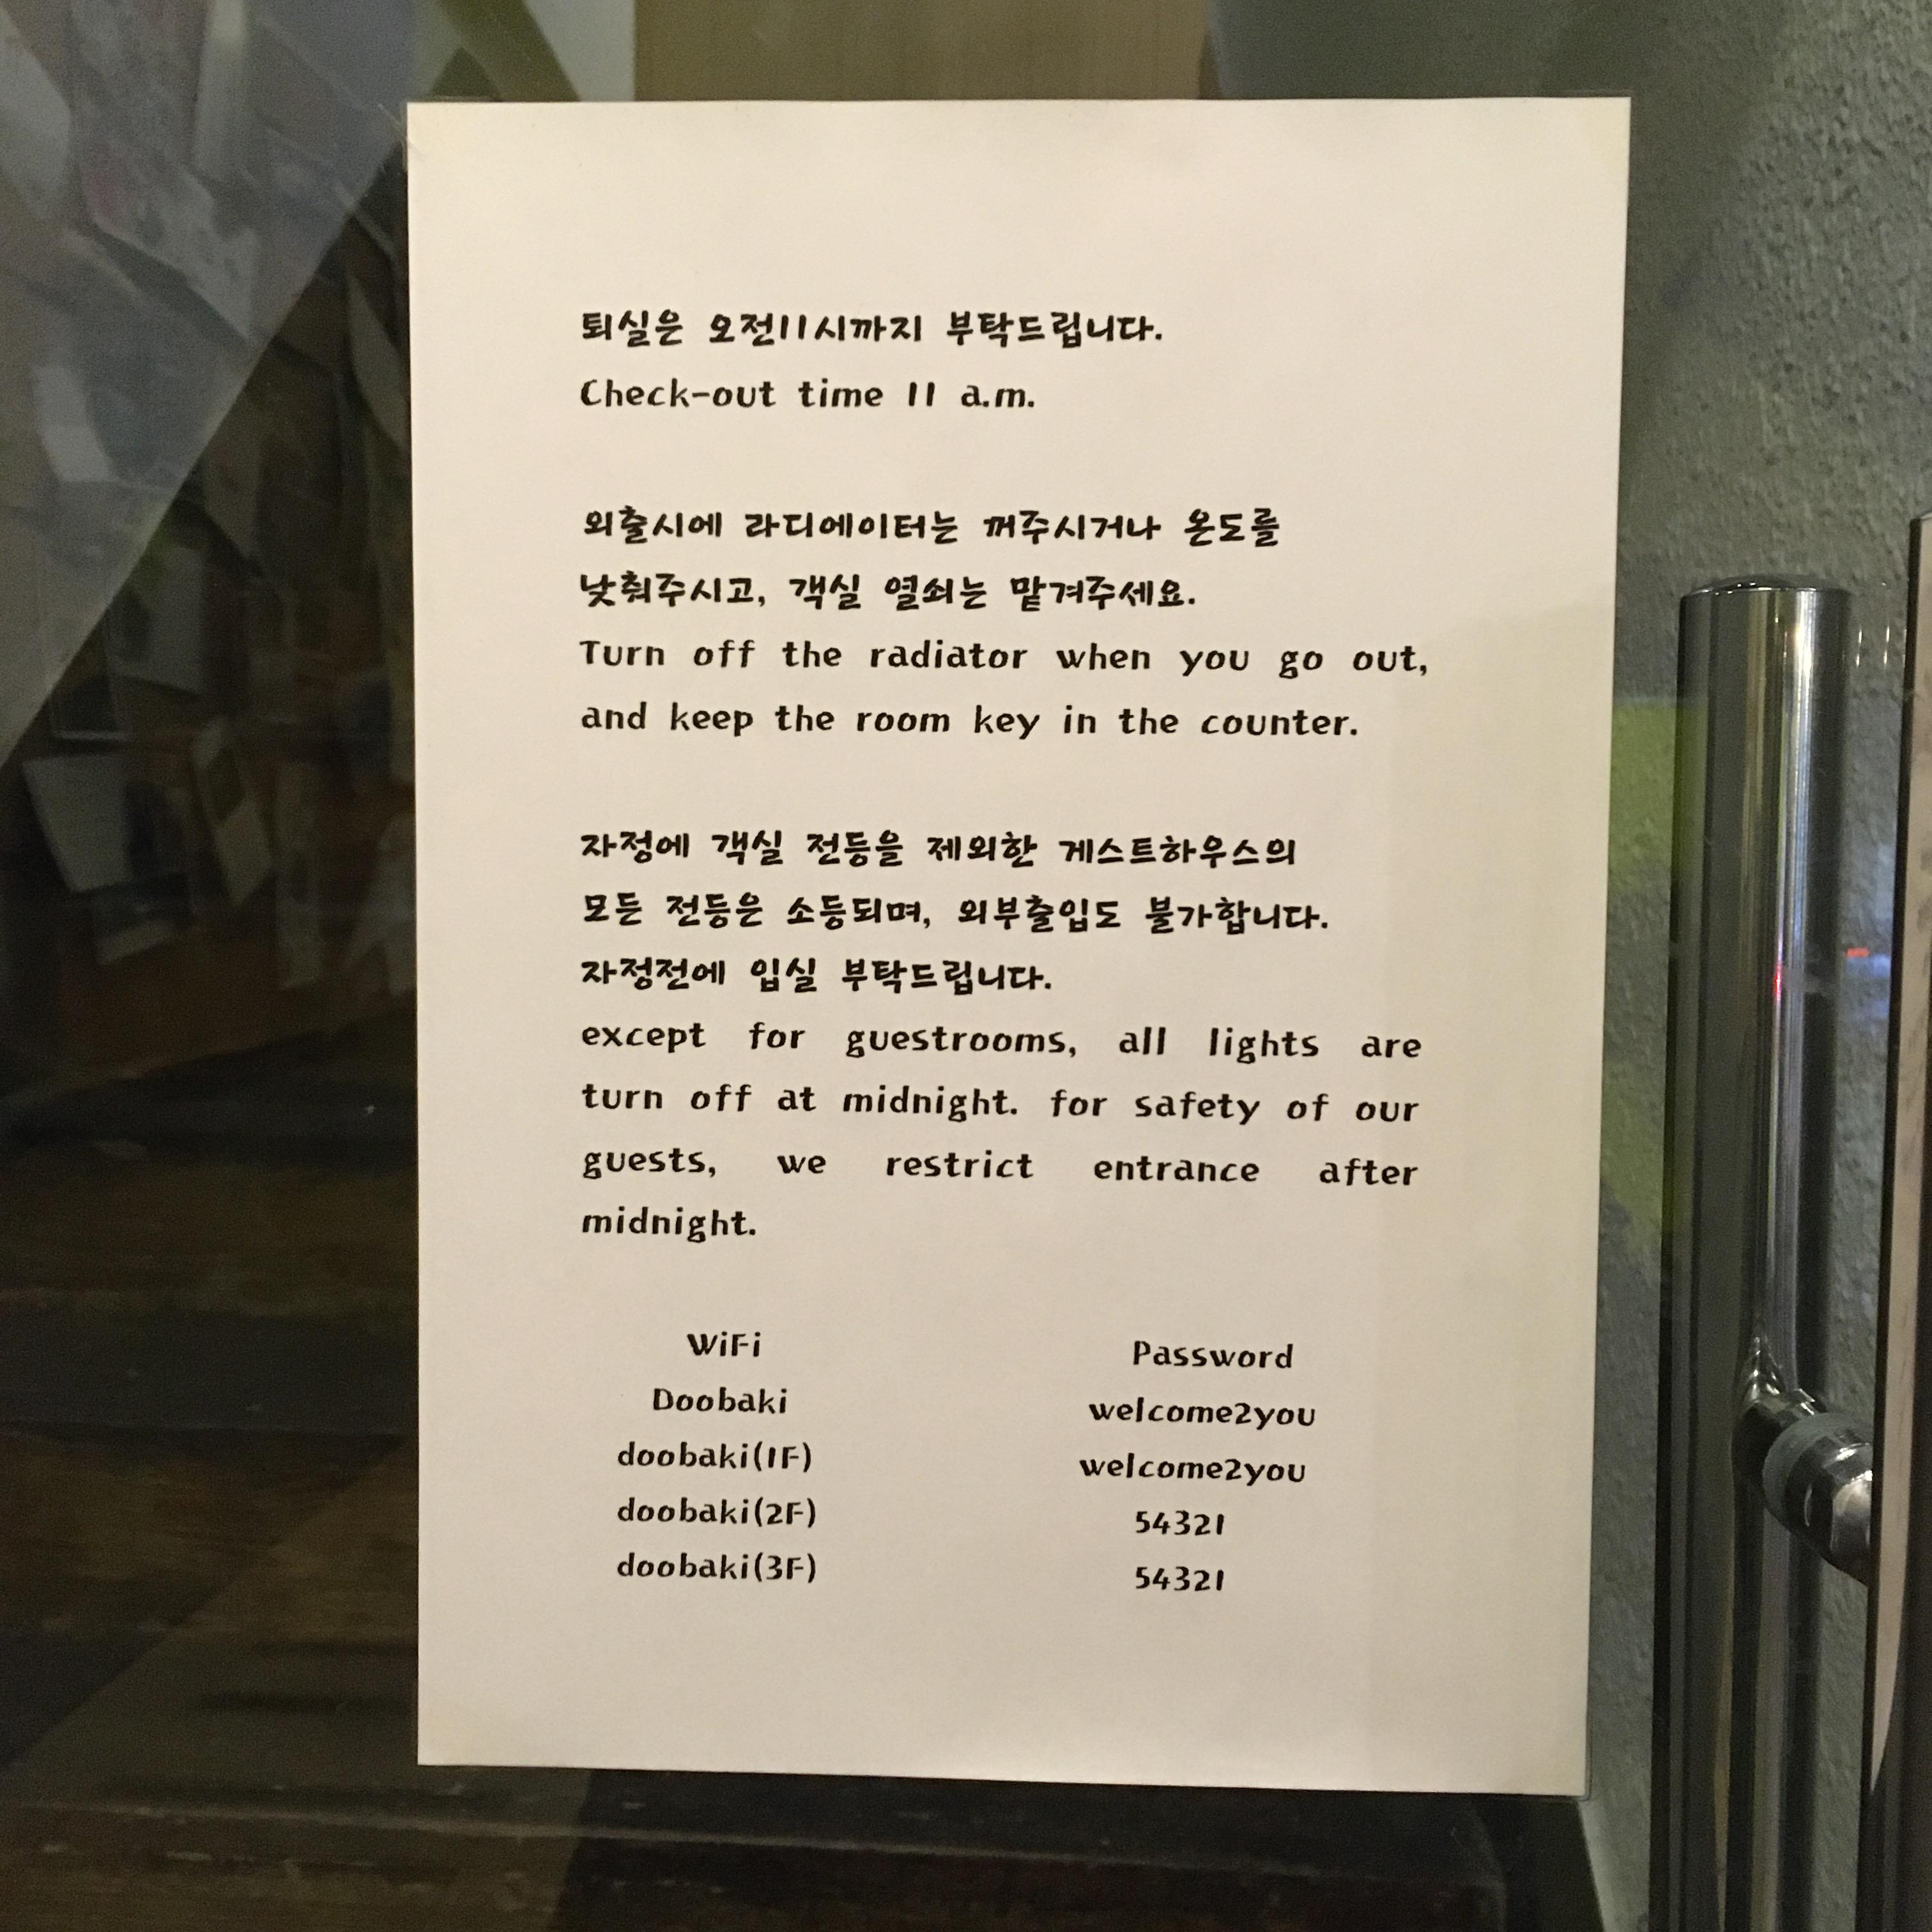 퇴실은 오전11시까지 부탁드립니다.
Check-out time 11 a.m.
외출시에 라디에이터는 꺼주시거나 온도를
낮춰주시고, 객실 열쇠는 맡겨주세요.
Turn off the radiator when you go out,
and keep the room key in the counter.
자정에 객실 전등을 제외한 게스트하우스의
모든 전등은 소등되며, 외부출입도 불가합니다.
자정전에 입실 부탁드립니다.
except for guestrooms, all lights are
turn off at midnight. for safety of our
guests, we restrict entrance after
midnight.
WiFi Password
Doobaki welcome2you
doobaki(1F) welcome2you
doobaki(2F) 54321
doobaki(3F) 54321